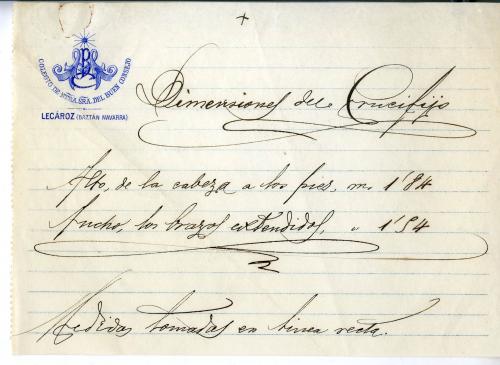 +
COLEGIO DE NTRA. SRA. DEL BUEN CONSEJO
LECÁROZ (BAZTÁN NAVARRA)
Dimensiones del Crucifijo
Alto, de la cabeza a los pies, m. 1'84
Ancho, los brazos extendidos, " 1'54
Medidas tomadas en linea recta.